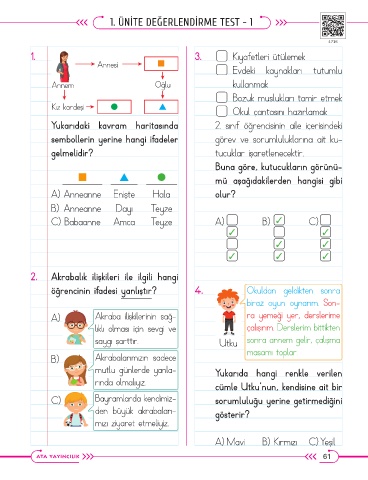 1. ÜNİTE DEĞERLENDİRME TEST - 1
1.
Annesi
Annem
Oğlu
Kız kardeşi
Yukarıdaki kavram haritasında
sembollerin yerine hangi ifadeler
gelmelidir?
A) Anneanne Enişte Hala
B) Anneanne Dayı Teyze
C) Babaanne Amca Teyze
2. Akrabalık ilişkileri ile ilgili hangi
öğrencinin ifadesi yanlıştır?
A) Akraba ilişkilerinin sağ-
lıklı olması için sevgi ve
saygı şarttır.
B) Akrabalarımızın sadece
mutlu günlerde yanla-
rında olmalıyız.
C) Bayramlarda kendimiz-
den büyük akrabaları-
mızı ziyaret etmeliyiz.
3. Kıyafetleri ütülemek
Evdeki kaynakları tutumlu
kullanmak
Bozuk muslukları tamir etmek
Okul çantasını hazırlamak
2. sınıf öğrencisinin aile içerisindeki
görev ve sorumluluklarına ait ku-
tucuklar işaretlenecektir.
Buna göre, kutucukların görünü-
mü aşağıdakilerden hangisi gibi
olur?
A) B) C)
4. Okuldan geldikten sonra
biraz oyun oynarım. Son-
ra yemeği yer, derslerime
çalışırım. Derslerim bittikten
sonra annem gelir, çalışma
masamı toplar.
Utku
Yukarıda hangi renkle verilen
cümle Utku'nun, kendisine ait bir
sorumluluğu yerine getirmediğini
gösterir?
A) Mavi B) Kırmızı C) Yeşil
ATA YAYINCILIK
61